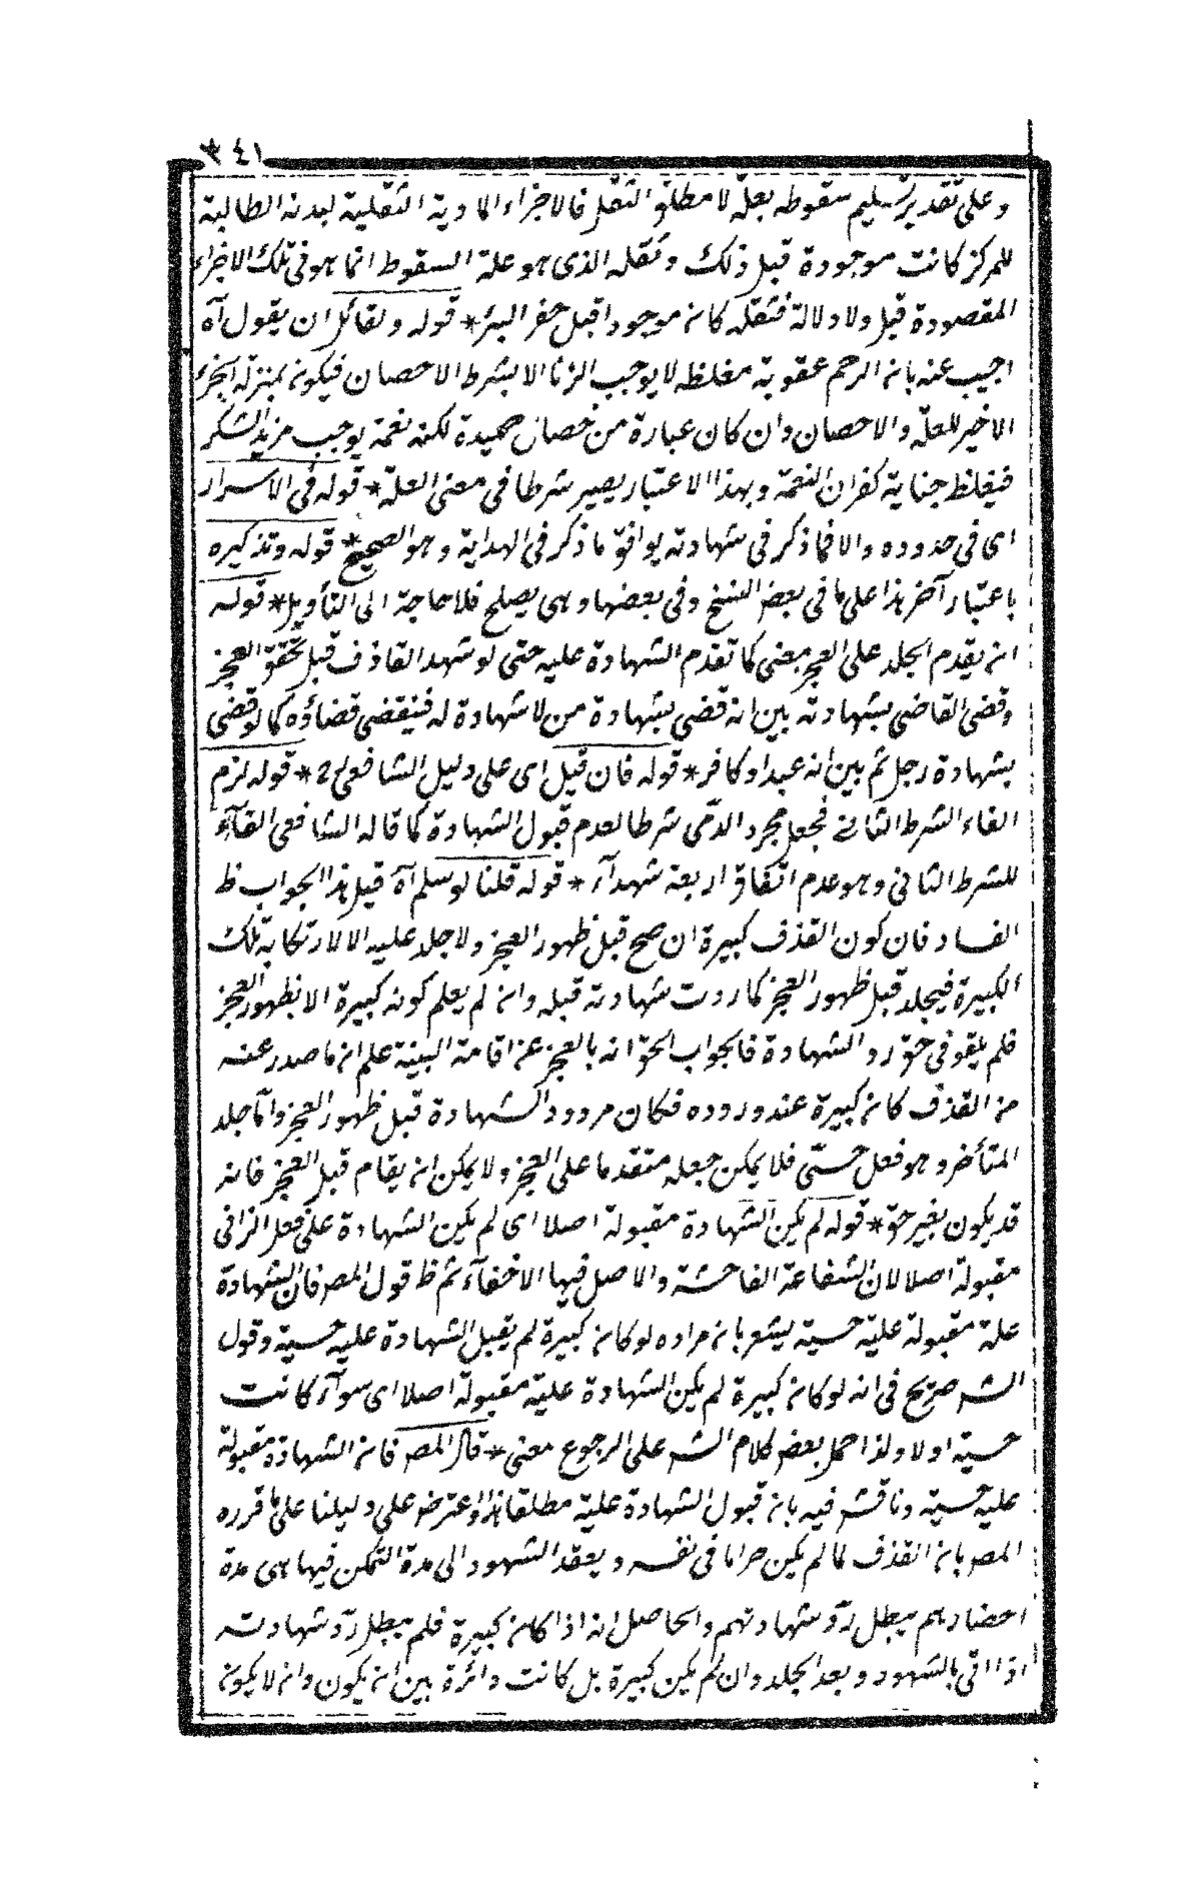 ٣٤١
وعلى تقدير تسليم سقوطه بعلة لا مطلق الثقل فالاجزاء المادية الثقلية لبدنه الطالبة
للمركز كانت موجودة قبل ذلك وثقله الذى هو علة السقوط انما هو فى تلك الاجزاء
المقصودة قبل ولا دلالة فثقله كان موجودا قبل حفر البئر * قوله ولقائل ان يقول آه
اجيب عنه بان الرجم عقوبة مغلظه لا يوجب الزنا الا بشرط الاحصان فيكون بمنزلة الجزء
الاخير للعلة والاحصان وان كان عبارة من خصال حميدة لكنه نعمة يوجب مزيد الشكر
فيغلظ جناية كفران النعمة وبهذا الاعتبار يصير شرطا فى معنى العلة * قوله فى الاسرار
اى فى حدوده والا فما ذكر فى شهادته يوافق ما ذكر فى الهداية وهو الصحيح * قوله وتذكيره
باعتبار آخر هذا على ما فى بعض النسخ وفى بعضها وهى يصلح فلا حاجة الى التأويل * قوله
انه يقدم الجلد على العجز معنى كما تقدم الشهادة عليه حتى لو شهد القاذف قبل تحقق العجز
وقضى القاضى بشهادته بين انه قضى بشهادة من لا شهادة له فينقض قضاؤه كما لو قضى
بشهادة رجل ثم بين انه عبد او كافر * قوله فان قيل اى على دليل الشافعى * قوله لزم
الغاء الشرط الثانى فجعل مجرد الرمى شرطا لعدم قبول الشهادة كما قاله الشافعى الغآء
للشرط الثانى وهو عدم اتفاق اربعة شهدآء * قوله قلنا لو سلم آه قيل هذا الجواب ظ
الفساد فان كون القذف كبيرة ان صح قبل ظهور العجز ولا جلد عليه الا لارتكابه تلك
الكبيرة فيجلد قبل ظهور العجز كما ردت شهادته قبله وان لم يعلم كونه كبيرة الا بظهور العجز
فلم يقو فى حق رد الشهادة فالجواب الحق انه بالعجز عن اقامة البينة علم ان ما صدر عنه
من القذف كان كبيرة عند وروده فكان مردود الشهادة قبل ظهور العجز واما جلد
المتأخر وهو فعل حسى فلا يمكن جعله متقدما على العجز ولا يمكن ان يقام قبل العجز فانه
قد يكون بغير حق * قوله لم يكن الشهادة مقبولة اصلا اى لم يكن الشهادة على فعل الزانى
مقبولة اصلا لان الشفاعة الفاحشة والاصل فيها الاخفآء ثم ظ قول المص فان الشهادة
علة مقبولة عليه حسبة يشعر بان مراده لو كان كبيرة لم يقبل الشهادة عليه حسبة وقول
الشـ صريح فى انه لو كان كبيرة لم يكن الشهادة عليه مقبولة اصلا اى سوآء كانت
حسبة او لا ولذا حمل بعض كلام الشـ على الرجوع معنى * قال المص فان الشهادة مقبولة
عليه حسبة وناقش فيه بان قبول الشهادة عليه مطلقا هذا واعترض على دليلنا على ما قرره
المص بان القذف لما لم يكن حراما فى نفسه ويعقد الشهود الى مدة التمكن فيها هى مدة
احضارهم يبطل رد شهادتهم والحاصل انه اذا كان كبيرة فلم يبطل رد شهادته
اذا اتى بالشهود وبعد الجلد وان لم يكن كبيرة بل كانت دائرة بين ان يكون وان لا يكون